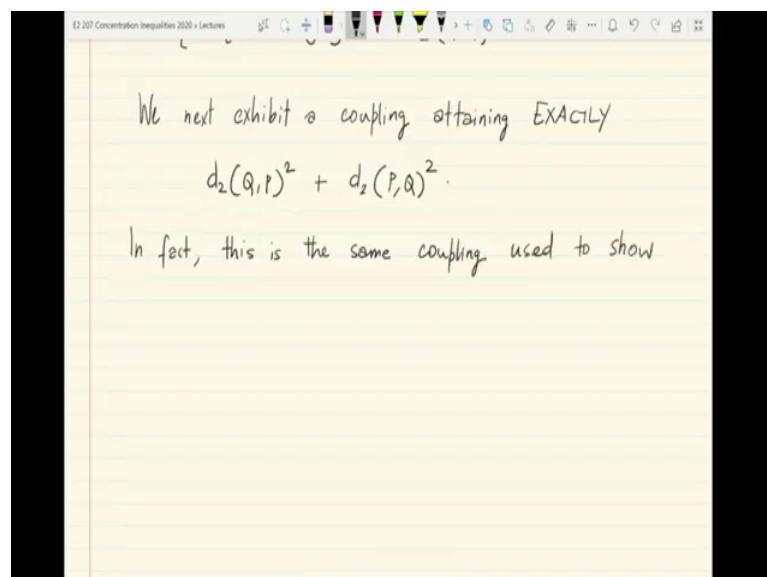 E2 207 Concentration Inequalities 2020 » Lectures
We next exhibit a coupling attaining EXACTLY
d₂(Q,P)² + d₂(P,Q)².
In fact, this is the same coupling used to show